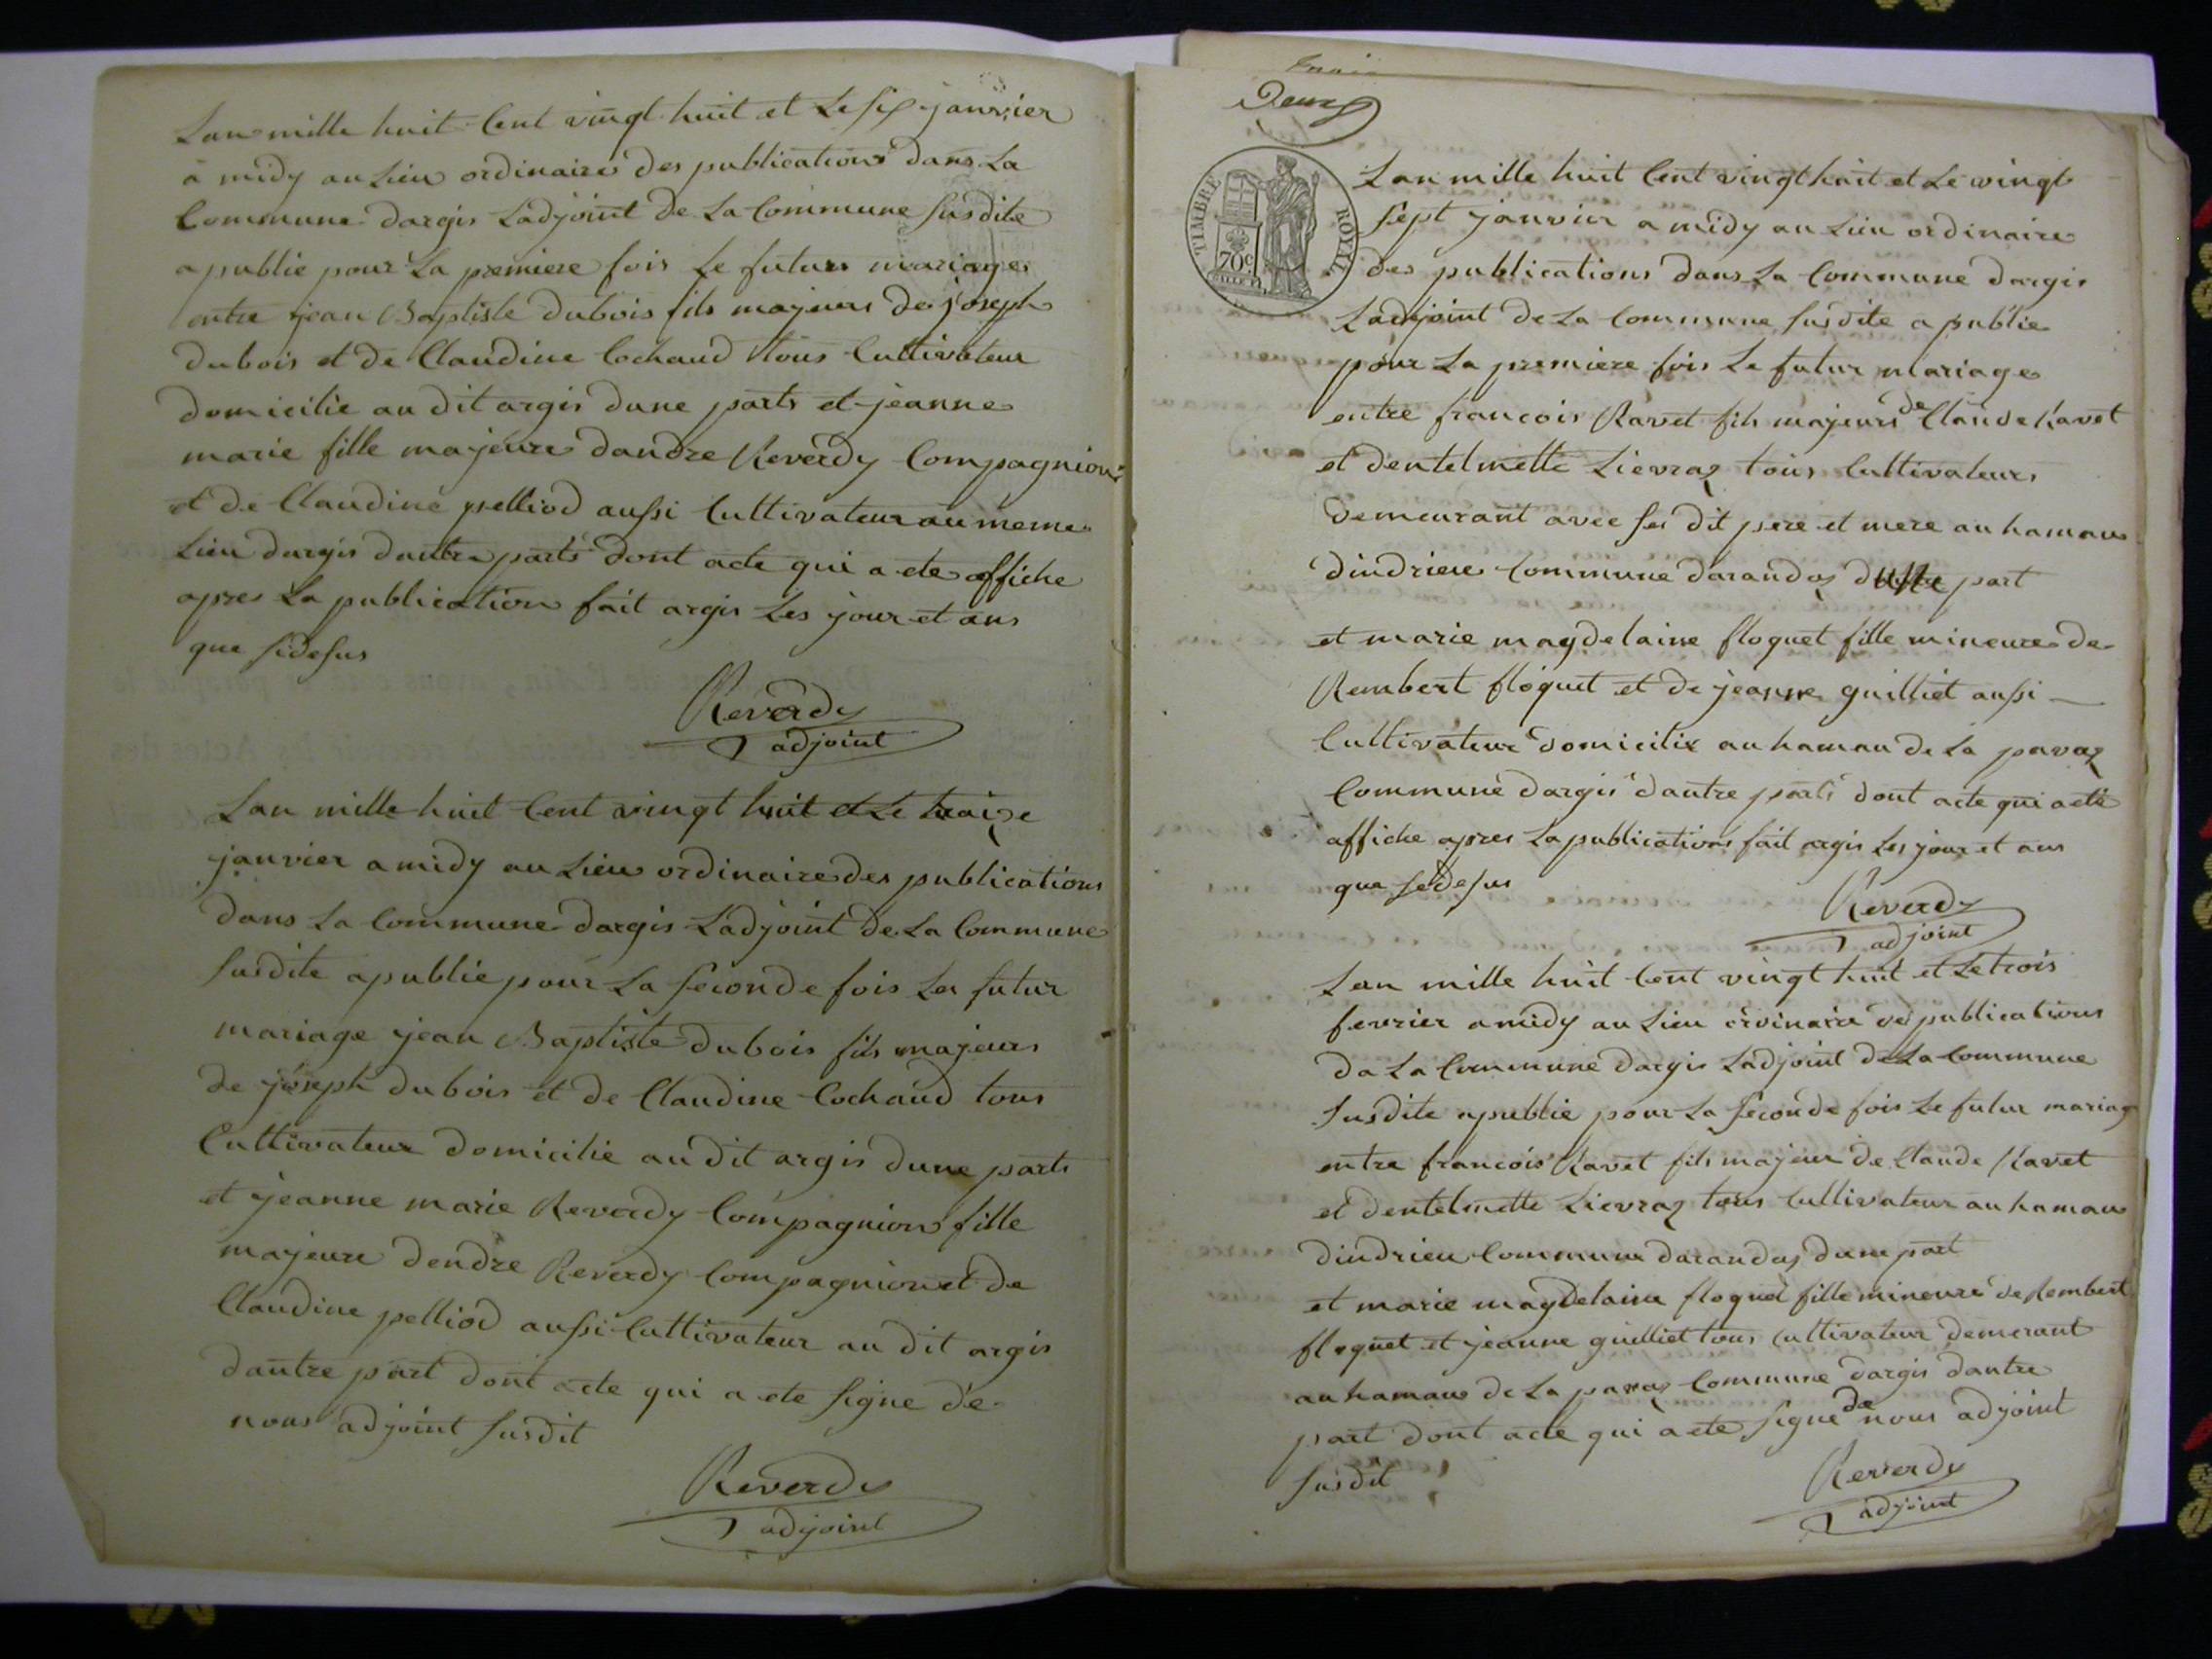 Lan mille huit Cent vingt huit et Le six janvier
a midy au Lieu ordinaire des publications dans La
Commune dargis Ladjoint de La Commune susdite
a publie pour La premiere fois Le futur mariage
entre jean Baptiste dubois fils majeurs de joseph
dubois et de Claudine Cochaud tous Cultivateur
domicilie au dit argis dune parts et jeanne
marie fille majeure dandre Reverdy Compagnion
et de Claudine pelliod aussi Cultivateur au meme
Lieu dargis dautre parts dont acte qui a ete affiche
apres La publication fait argis Les jour et ans
que sidesus
Reverdy
adjoint
Lan mille huit Cent vingt huit et Le traize
janvier a midy au Lieu ordinaire des publications
dans La Commune dargis Ladjoint de La Commune
susdite a publie pour La seconde fois Le futur
mariage jean Baptiste dubois fils majeurs
de joseph dubois et de Claudine Cochaud tous
Cultivateur domicilie au dit argis dune parts
et jeanne marie Reverdy Compagnion fille
majeure dendre Reverdy Compagnion et de
Claudine pelliod aussi Cultivateur au dit argis
dautre part dont acte qui a ete signe de
nous adjoint susdit
Reverdy
adjoint
Deux
TIMBRE ROYAL
70c
Lan mille huit Cent vingt huit et Le vingt
sept janvier a midy au Lieu ordinaire
des publications dans La Commune dargis
Ladjoint de La Commune susdite a publie
pour La premiere fois Le futur mariage
entre francois Ravet fils majeurs de Claude Ravet
et dentelmette Lievraz tous Cultivateurs
demeurant avec ses dit pere et mere au hamau
dindrieu Commune darandaz dune part
et marie magdelaine floquet fille mineure de
Rembert floquet et de jeanne guilliet aussi
Cultivateur domicilie au hamau de La pavaz
Commune dargis dautre parts dont acte qui a ete
affiche apres La publications fait argis Les jour et ans
que sedesus
Reverdy
adjoint
Lan mille huit Cent vingt huit et Le trois
fevrier a midy au Lieu ordinaire des publications
da La Commune dargis Ladjoint de La Commune
susdite a publie pour La seconde fois Le futur mariag
entre francois Ravet fils majeur de Claude Ravet
et dentelmette Lievraz tous Cultivateur au hamau
dindrieu Commune darandaz dune part
et marie magdelaine floquet fille mineure de Rembert
floquet et jeanne guilliet tous Cultivateur demerant
au hamau de La pavaz Commune dargis dautre
part dont acte qui a ete signe de nous adjoint
susdit
Reverdy
adjoint